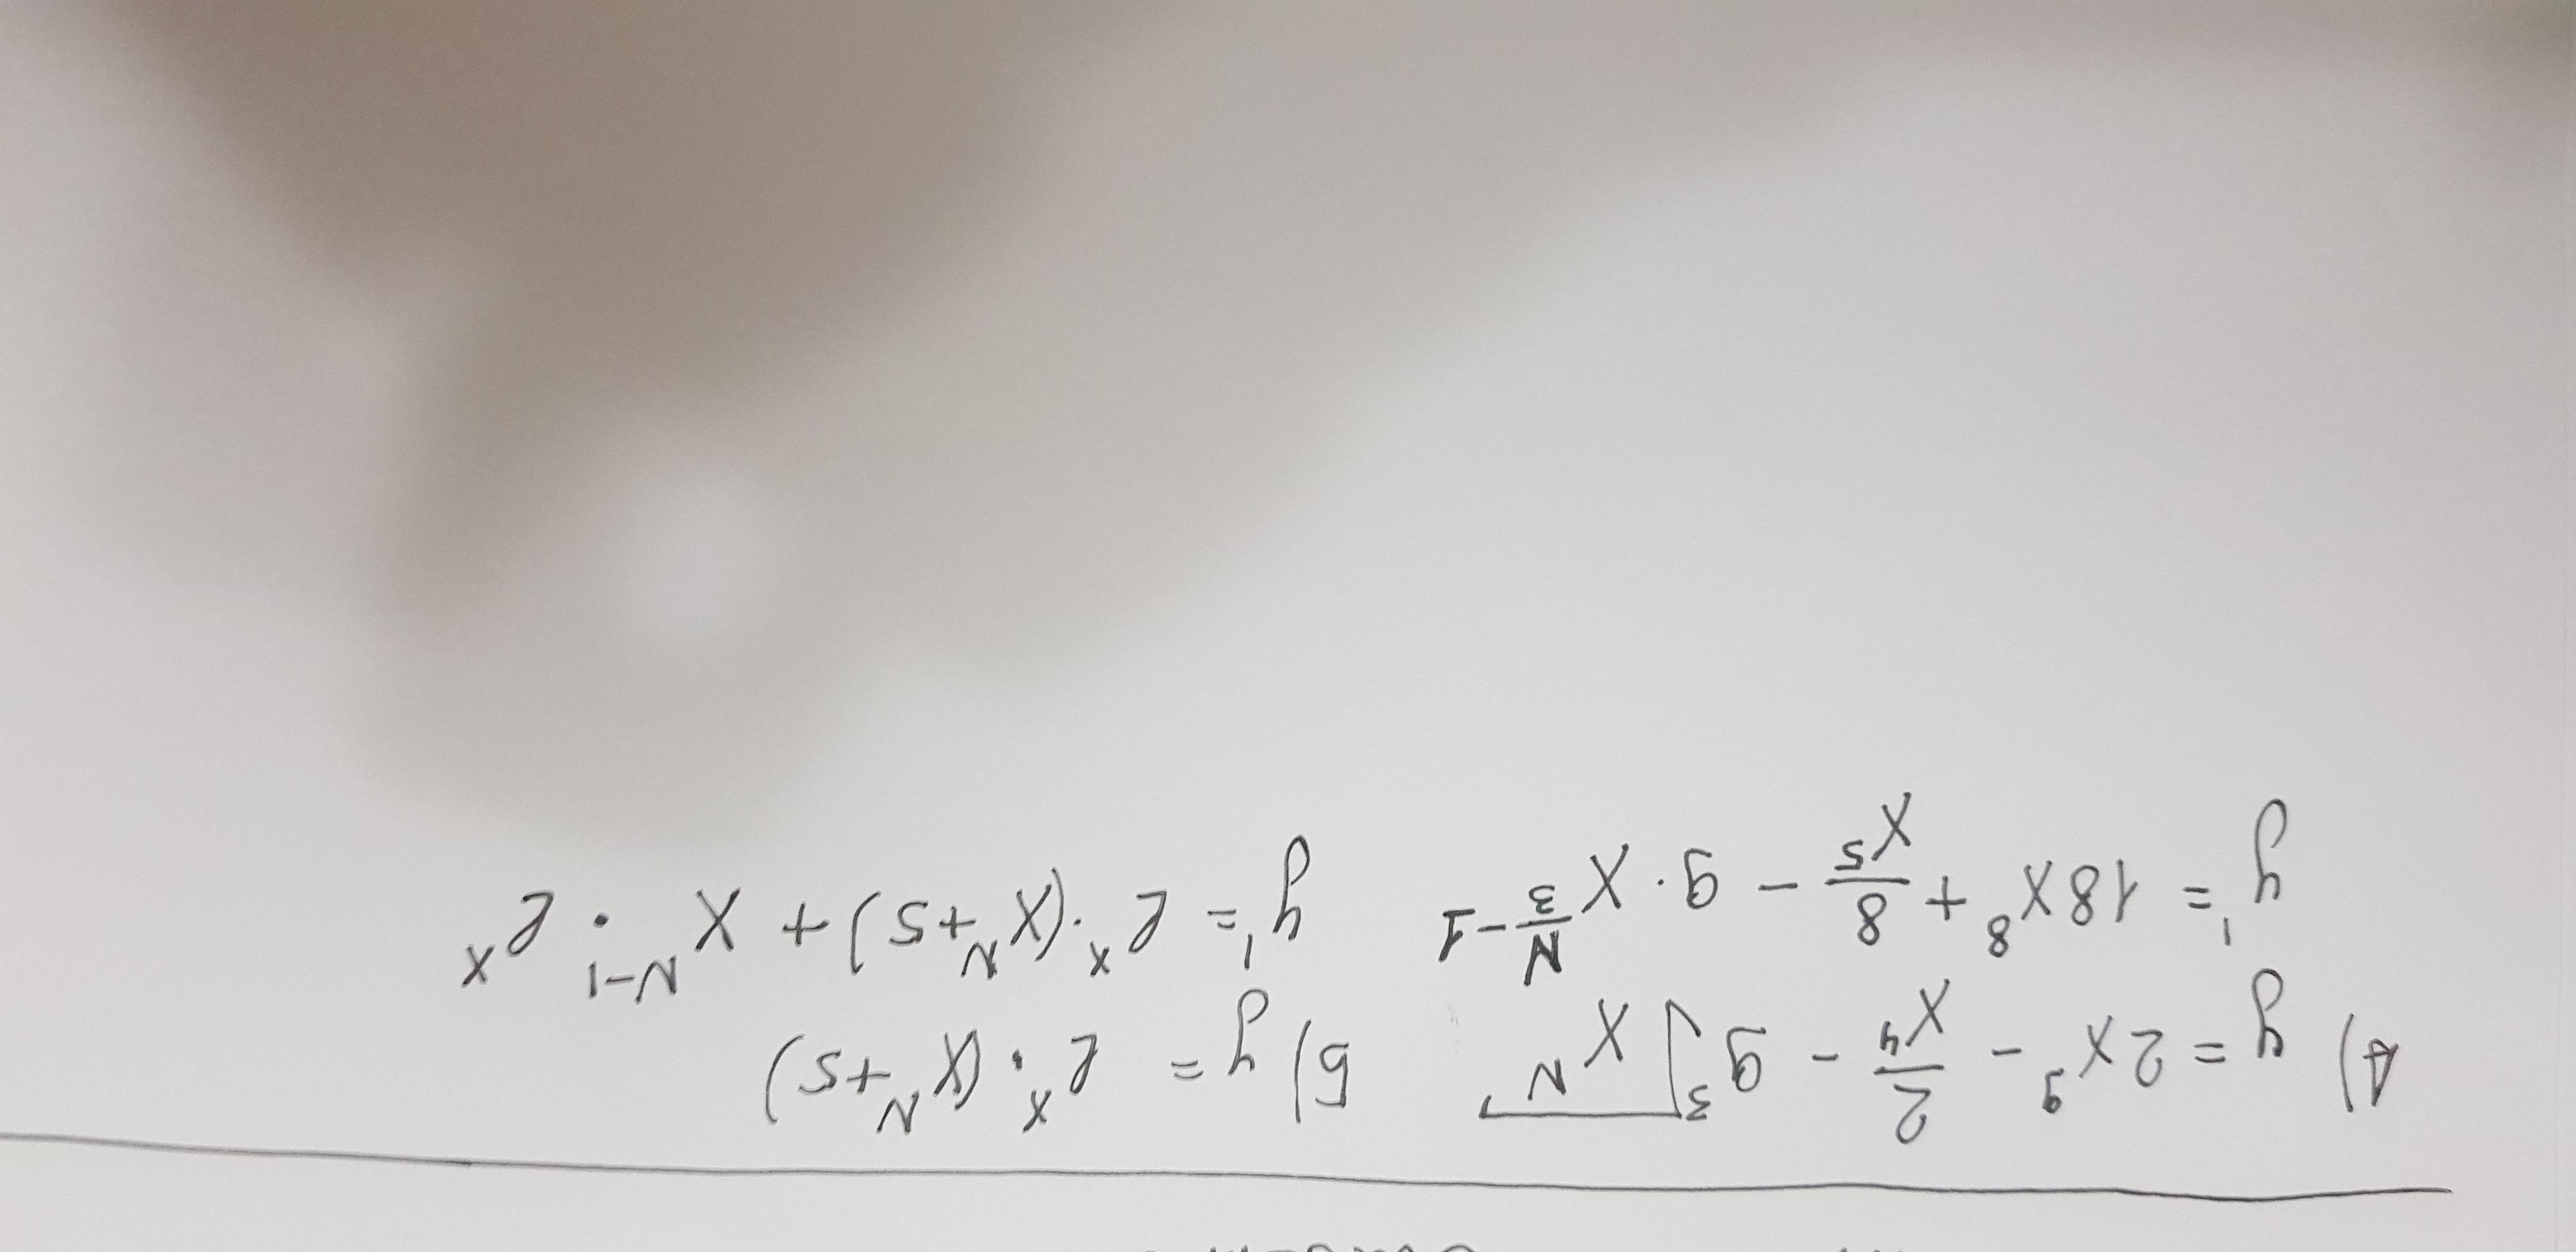 А) y = 2x⁹ - 2/x⁴ - 9 ³√x^N
Б) y = e^x · (x^N + 5)
y' = 18x⁸ + 8/x⁵ - 9 · x^(N/3 - 1)
y' = e^x · (x^N + 5) + x^(N-1) · e^x